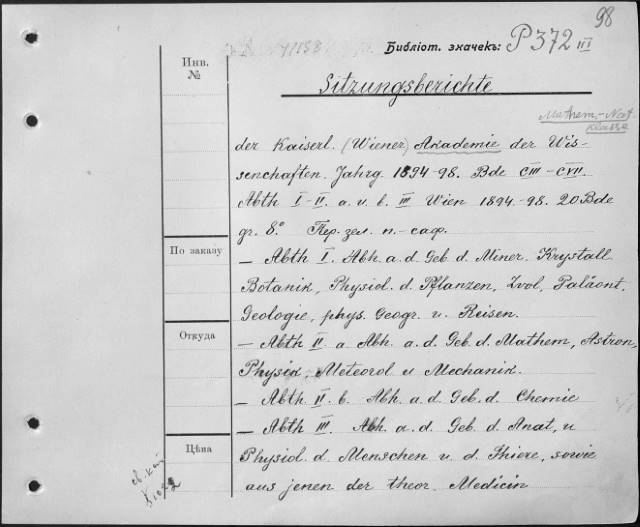 98
Библіот. значекъ: P 372 III
Инв.
№
Sitzungsberichte
Mathem.-Nat.
Klasse
der Kaiserl. (Wiener) Akademie der Wis-
senschaften. Jahrg. 1894-98. Bde CIII-CVII.
Abth I-II. a. u. b. III Wien 1894.-98. 20 Bde
gr. 8.° Пер. зел. п.-саф.
По заказу
— Abth I. Abh. a. d. Geb d. Miner. Krystall
Botanik, Physiol. d. Pflanzen, Zool, Paläont.
Geologie, phys. Geogr. u. Reisen.
Откуда
— Abth II. a Abh. a. d. Geb. d. Mathem, Astron,
Physik Meteorol u Mechanik.
— Abth. II. b. Abh. a. d. Geb. d. Chemie
— Abth III. Abh. a. d. Geb. d. Anat, u
Цѣна
Physiol d. Menschen u. d. Thiere, sowie
aus jenen der theor. Medicin